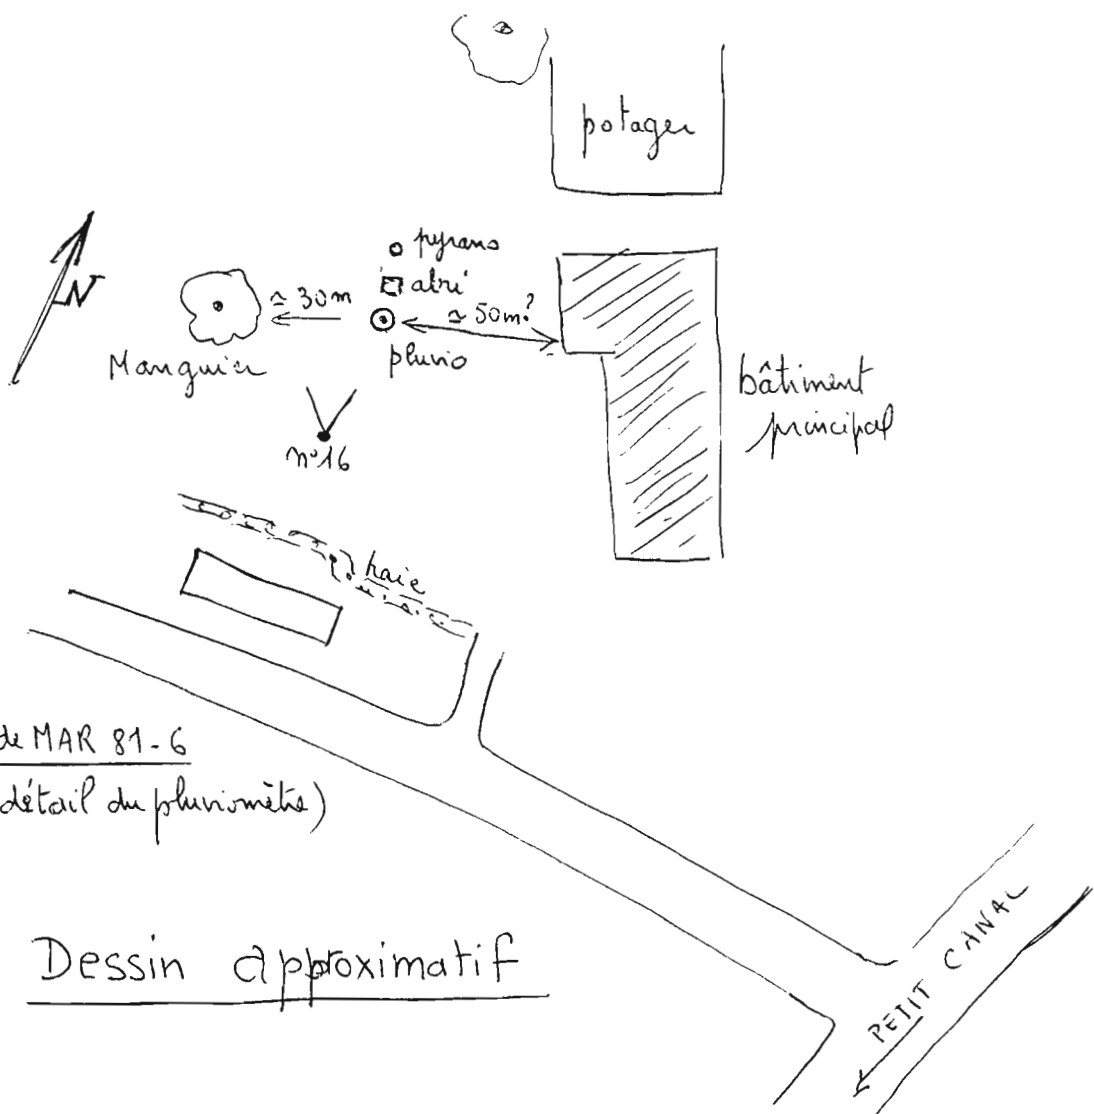 potager
pyrano
abri
≃ 30m
≃ 50m?
N
Manguier
pluvio
bâtiment
principal
n°16
haie
de MAR 81-6
détail du pluviomètre)
Dessin approximatif
PETIT CANAL